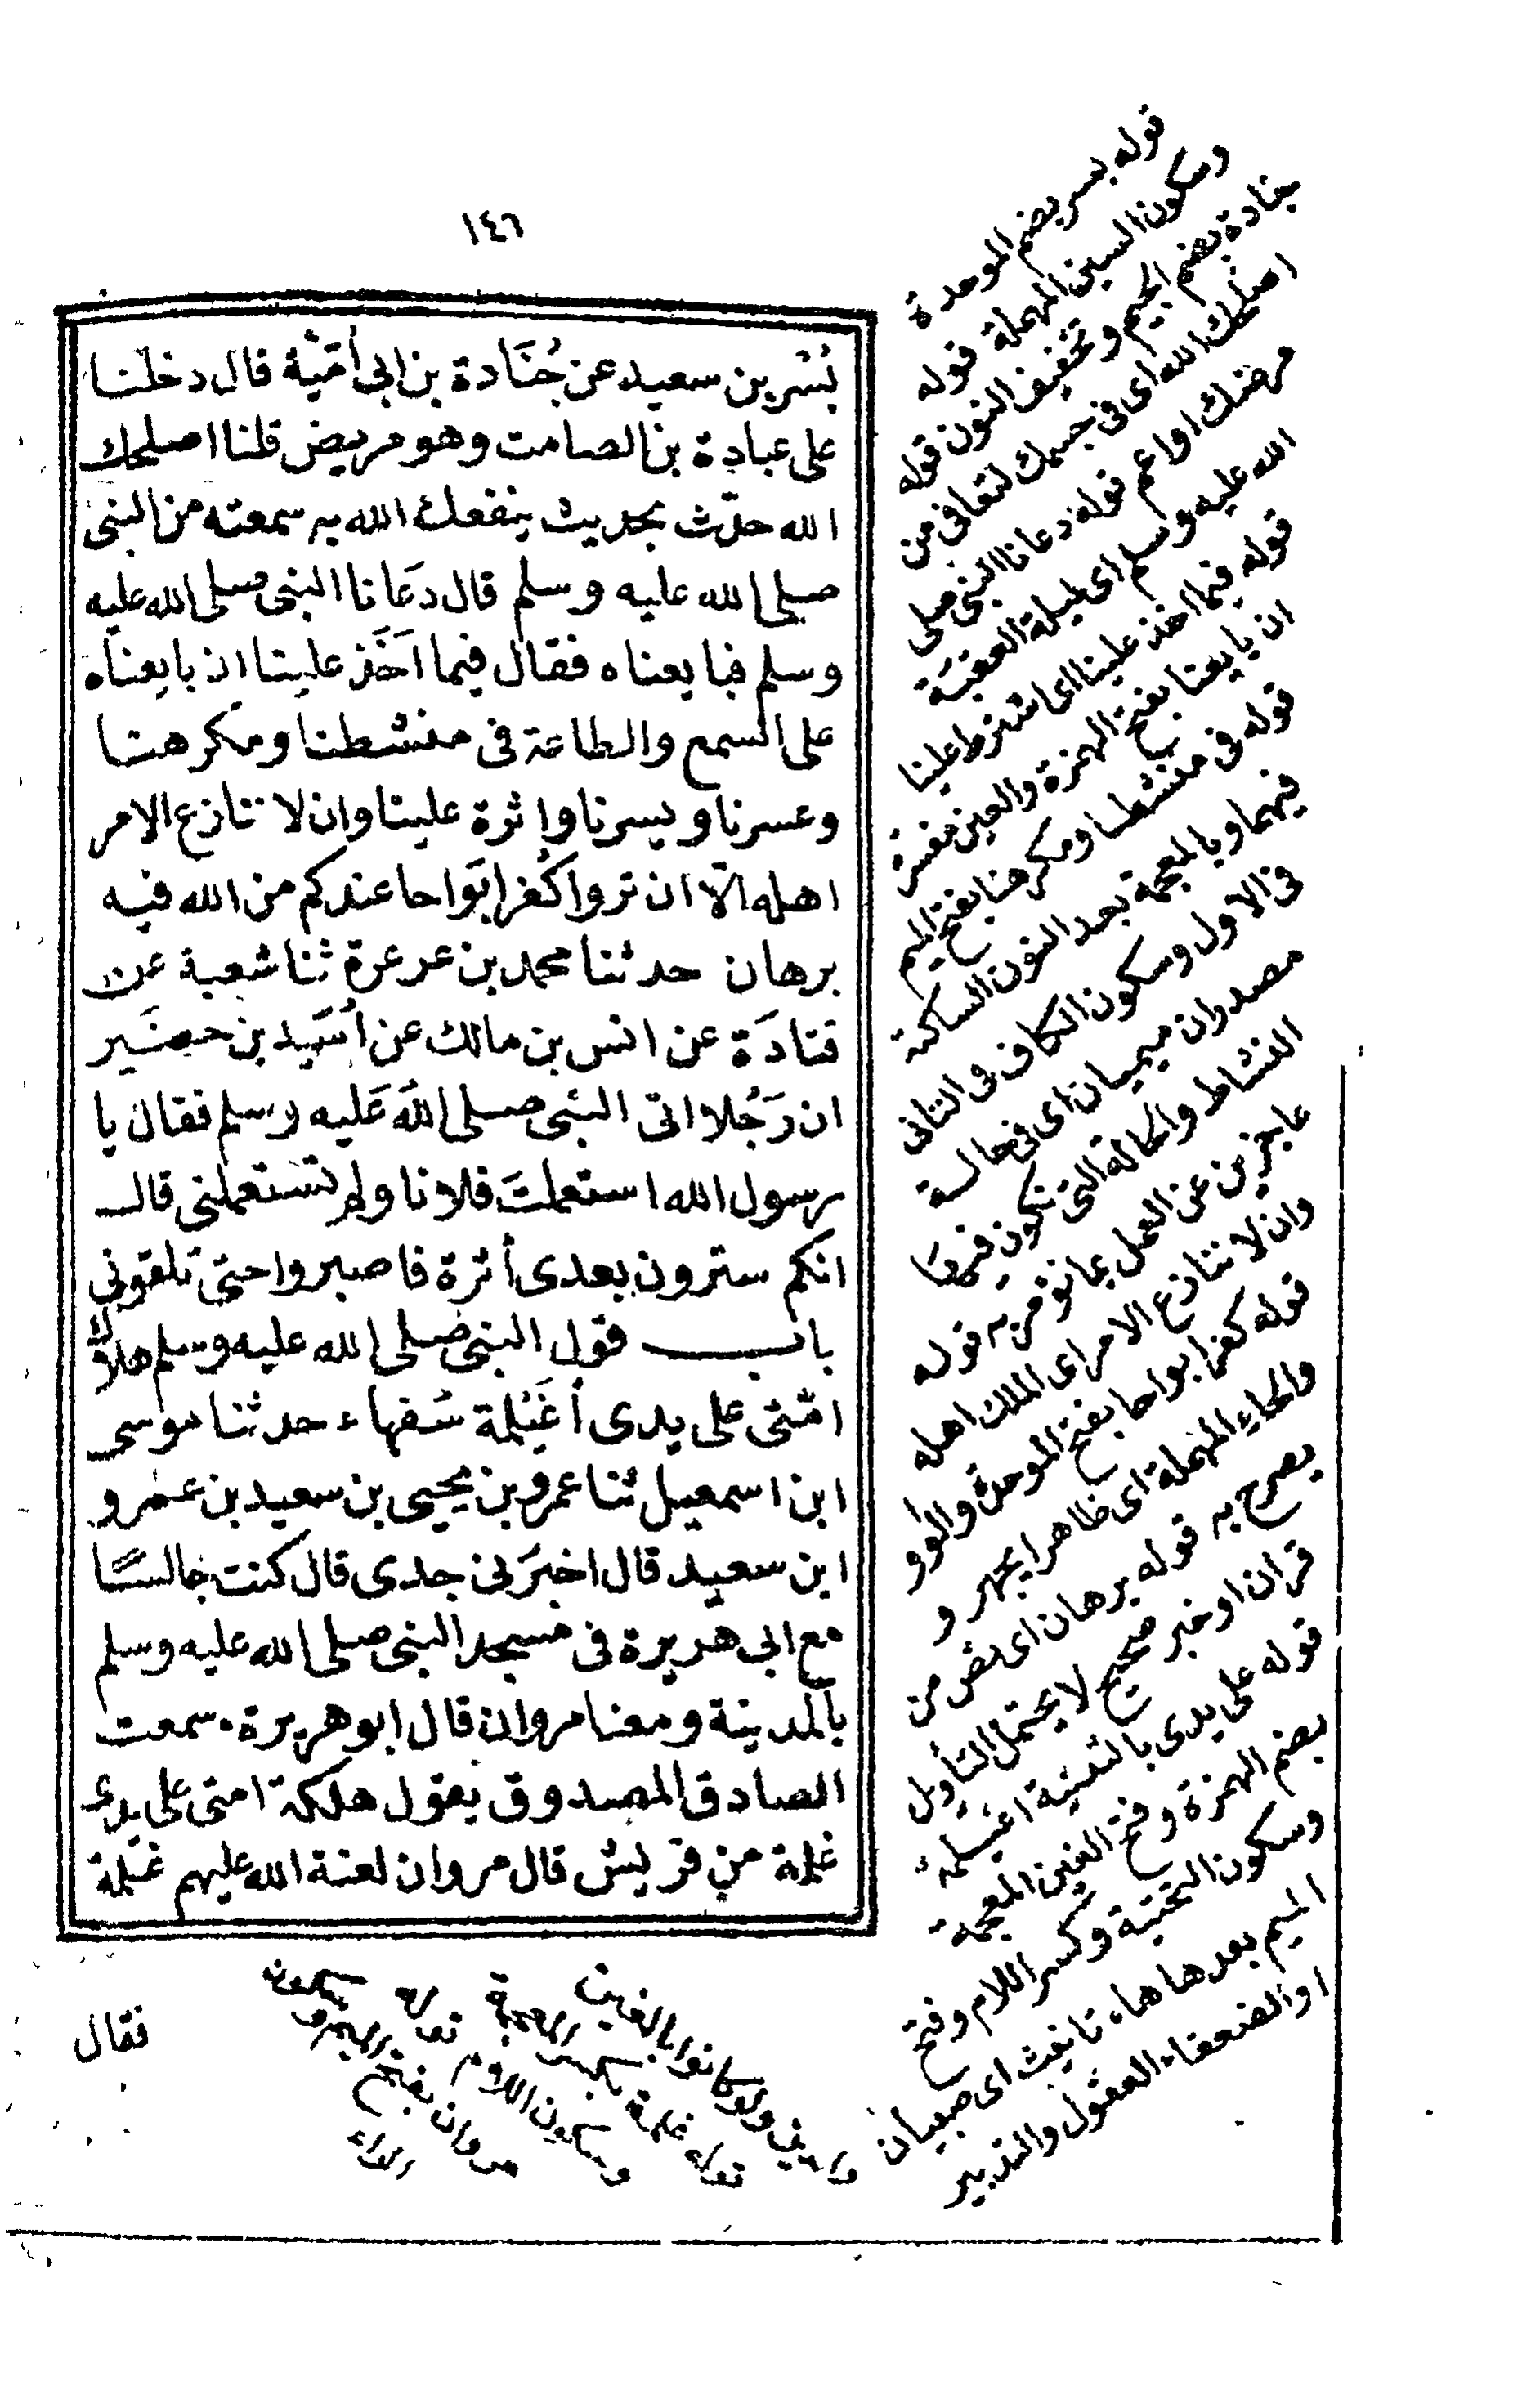 ١٤٦
بُسْر بن سعيد عن جُنَادة بن ابى أُمَيَّة قال دخلنا
على عبادة بن الصامت وهو مريض قلنا اصلحك
الله حدّث بحديث ينفعك الله به سمعته من النبى
صلى الله عليه وسلم قال دَعَانا النبى صلى الله عليه
وسلم فبايعناه فقال فيما اَخَذ علينا ان بايعناه
على السمع والطاعة فى منشطنا ومكرهنا
وعسرنا ويسرنا واثرة علينا وان لا ننازع الامر
اهله الّا ان تروا كُفرا بَواحا عندكم من الله فيه
برهان حدثنا محمد بن عرعرة ثنا شعبة عن
قتادَة عن انس بن مالك عن أُسَيد بن حضَير
ان رَجُلا اتى النبى صلى اللهَ عَليه وسلم فقال يا
رسول الله استعملتَ فلانا ولم تستعملنى قال
انكم سترون بعدى أثرة فاصبروا حتى تلقونى
باب قول النبى صلى الله عليه وسلم هلاك
امّتى على يدى أُغَيْلمة سُفهاء حدثنا موسى
ابن اسمعيل ثنا عمرو بن يحيى بن سعيد بن عمرو
ابن سعيد قال اخبَرَنى جدى قال كنت جالسًا
مع ابى هريرة فى مسجد النبى صلى الله عليه وسلم
بالمدينة ومعنا مروان قال ابو هريرة سمعت
الصادق المصدوق يقول هلكة امتى على يدى
غلمة من قريش قال مروان لعنة الله عليهم غلمة
فقال
قوله بسر بضم الموحدة
وسكون السين المهملة قوله
جنادة بضم الجيم وتخفيف النون قوله
اصلحك الله اى فى جسمك لتعافى من
مرضك او اعم قوله دعانا النبى صلى
الله عليه وسلم اى ليلة العقبة
قوله فيما اخذ علينا اى اشترط علينا
ان بايعنا بفتح الهمزة والعين مفسر
قوله فى منشطنا ومكرهنا بفتح الميم
فيهما وبالمعجمة بعد النون الساكنة
فى الاول وسكون الكاف فى الثانى
مصدران ميميان اى فى حالة
النشاط والحالة التى نكون فيها
عاجزين عن العمل بما نؤمر به قوله
وان لا ننازع الامر اى الملك اهله
قوله كفرا بواحا بفتح الموحدة والواو
والحاء المهملة اى ظاهرا يجهر و
يصرح به قوله برهان اى نص من
قران او خبر صحيح لا يحتمل التأويل
قوله على يدى بالتثنية اغيلمة
بضم الهمزة وفتح الغين المعجمة
وسكون التحتية وكسر اللام وفتح
الميم بعدها هاء تانيث اى صبيان
او الضعفاء العقول والتدبير
والدين ولو كانوا بالغين
قوله غلمة بكسر المعجمة
وسكون اللام قوله
مروان بفتح الميم وسكون
الراء